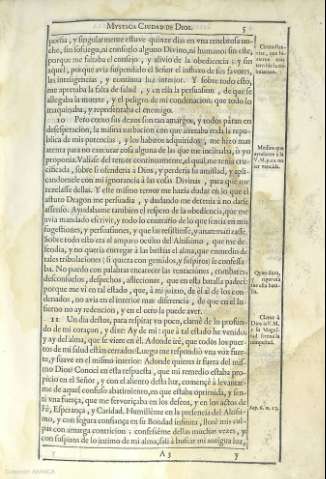 MYSTICA CIUDAD DE DIOS. 5
porfia, y singularmente estuve quinze dias en vna tenebrosa no-
che, sin sosiego, ni consejo alguno Divino, ni humano: sin este,
porque me faltaba el consejo, y alivio de la obediencia; y sin
aquel, porque avia suspendido el Señor el influxo de sus favores,
las inteligencias, y continua luz interior. Y sobre todo esto,
me apretaba la falta de salud, y en ella la persuasion, de que se
allegaba la muerte, y el peligro de mi condenacion: que todo lo
maquinaba, y representaba el enemigo.
10 Pero como sus dexos son tan amargos, y todos paran en
desesperacion, la misma turbacion con que atentaba toda la repu-
blica de mis potencias, y los habitos adquiridos, me hizo mas
atenta para no executar cosa alguna de las que me inclinaba, ò yo
proponia. Valiase del temor continuamente, al qual me tenia cru-
cificada, sobre si ofenderia à Dios, y perderia su amistad, y apli-
candomele con mi ignorancia à las cosas Divinas, para que me
rezelasse dellas. Y este mismo temor me hazia dudar en lo que el
astuto Dragon me persuadia, y dudando me detenia à no darle
assenso. Ayudabame tambien el respeto de la obediencia, que me
avia mandado escrivir, y todo lo contrario de lo que sentia en mis
sugestiones, y persuasiones, y que las resistiesse, y anatematizasse.
Sobre todo esto era el amparo oculto del Altissimo, que me de-
fendia, y no queria entregar à las bestias el alma, que en medio de
tales tribulaciones; si quiera con gemidos, y suspiros le confessa-
ba. No puedo con palabras encarecer las tentaciones, combates,
desconsuelos, despechos, aflicciones, que en esta batalla padecì:
porque me vì en tal estado, que, à mi juizio, de èl al de los con-
denados, no avia en el interior mas diferencia, de que en el in-
fierno no ay redencion, y en el otro la puede aver.
11 Vn dia destos, para respirar vn poco, clamè de lo profun-
do de mi coraçon, y dixe: Ay de mi! que à tal estado he venido;
y ay del alma, que se viere en èl. Adonde irè, que todos los puer-
tos de mi salud estàn cerrados? Luego me respondiò vna voz fuer-
te, y suave en el mismo interior: Adonde quieres ir fuera del mis-
mo Dios? Conocì en esta respuesta, que mi remedio estaba pro-
picio en el Señor, y con el aliento desta luz, comencè à levantar-
me de aquel confuso abatimiento, en que estaba oprimida, y sen-
tì vna fuerça, que me fervorizaba en los deseos, y en los actos de
Fè, Esperança, y Caridad. Humillème en la presencia del Altissi-
mo, y con segura confiança en su Bondad infinita, llorè mis cul-
pas con amarga contricion: confessème dellas muchas vezes, y
con suspiros de lo intimo de mi alma, salì à buscar mi antigua luz,
A3 y